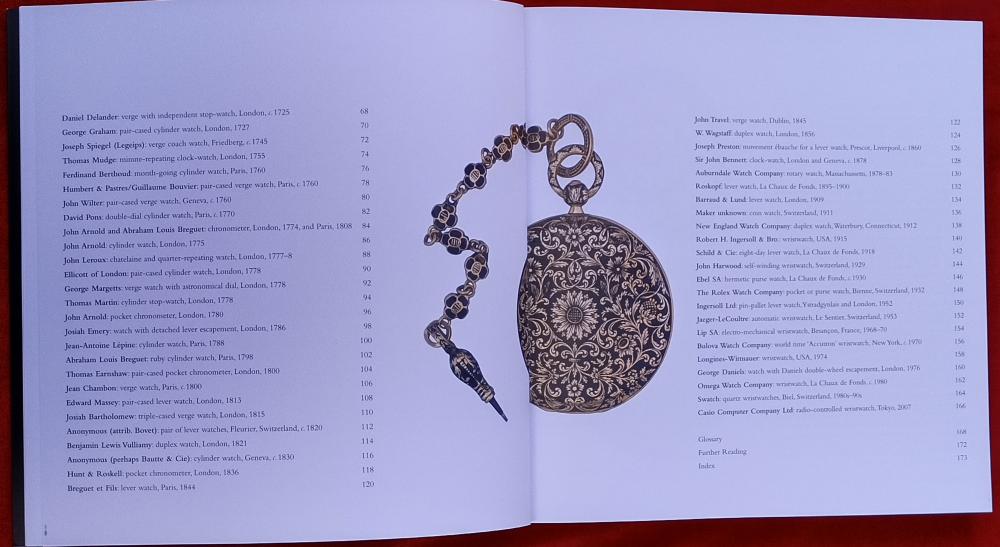 Daniel Delander: verge with independent stop-watch, London, c.1725 68
George Graham: pair-cased cylinder watch, London, 1727 70
Joseph Spiegel (Legeips): verge coach watch, Friedberg, c.1745 72
Thomas Mudge: minute-repeating clock-watch, London, 1755 74
Ferdinand Berthoud: month-going cylinder watch, Paris, 1760 76
Humbert & Pastres/Guillaume Bouvier: pair-cased verge watch, Paris, c.1760 78
John Wilter: pair-cased verge watch, Geneva, c.1760 80
David Pons: double-dial cylinder watch, Paris, c.1770 82
John Arnold and Abraham Louis Breguet: chronometer, London, 1774, and Paris, 1808 84
John Arnold: cylinder watch, London, 1775 86
John Leroux: chatelaine and quarter-repeating watch, London, 1777–8 88
Ellicott of London: pair-cased cylinder watch, London, 1778 90
George Margetts: verge watch with astronomical dial, London, 1778 92
Thomas Martin: cylinder stop-watch, London, 1778 94
John Arnold: pocket chronometer, London, 1780 96
Josiah Emery: watch with detached lever escapement, London, 1786 98
Jean-Antoine Lépine: cylinder watch, Paris, 1788 100
Abraham Louis Breguet: ruby cylinder watch, Paris, 1798 102
Thomas Earnshaw: pair-cased pocket chronometer, London, 1800 104
Jean Chambon: verge watch, Paris, c.1800 106
Edward Massey: pair-cased lever watch, London, 1813 108
Josiah Bartholomew: triple-cased verge watch, London, 1815 110
Anonymous (attrib. Bovet): pair of lever watches, Fleurier, Switzerland, c.1820 112
Benjamin Lewis Vulliamy: duplex watch, London, 1821 114
Anonymous (perhaps Bautte & Cie): cylinder watch, Geneva, c.1830 116
Hunt & Roskell: pocket chronometer, London, 1836 118
Breguet et Fils: lever watch, Paris, 1844 120
John Travel: verge watch, Dublin, 1845 122
W. Wagstaff: duplex watch, London, 1856 124
Joseph Preston: movement ébauche for a lever watch, Prescot, Liverpool, c.1860 126
Sir John Bennett: clock-watch, London and Geneva, c.1878 128
Auburndale Watch Company: rotary watch, Massachusetts, 1878–83 130
Roskopf: lever watch, La Chaux de Fonds, 1895–1900 132
Barraud & Lund: lever watch, London, 1909 134
Maker unknown: coin watch, Switzerland, 1911 136
New England Watch Company: duplex watch, Waterbury, Connecticut, 1912 138
Robert H. Ingersoll & Bro.: wristwatch, USA, 1915 140
Schild & Cie: eight-day lever watch, La Chaux de Fonds, 1918 142
John Harwood: self-winding wristwatch, Switzerland, 1929 144
Ebel SA: hermetic purse watch, La Chaux de Fonds, c.1930 146
The Rolex Watch Company: pocket or purse watch, Bienne, Switzerland, 1932 148
Ingersoll Ltd: pin-pallet lever watch, Ystradgynlais and London, 1952 150
Jaeger-LeCoultre: automatic wristwatch, Le Sentier, Switzerland, 1953 152
Lip SA: electro-mechanical wristwatch, Besançon, France, 1968–70 154
Bulova Watch Company: world time 'Accutron' wristwatch, New York, c.1970 156
Longines-Wittnauer: wristwatch, USA, 1974 158
George Daniels: watch with Daniels double-wheel escapement, London, 1976 160
Omega Watch Company: wristwatch, La Chaux de Fonds, c.1980 162
Swatch: quartz wristwatches, Biel, Switzerland, 1980s–90s 164
Casio Computer Company Ltd: radio-controlled wristwatch, Tokyo, 2007 166
Glossary 168
Further Reading 172
Index 173